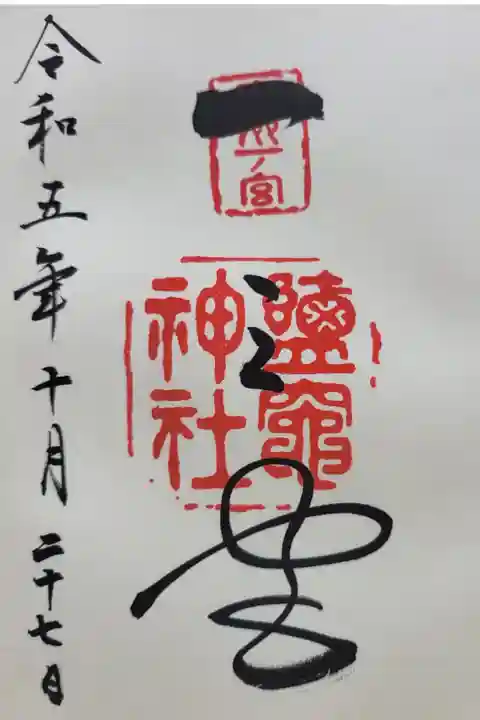 一ノ宮
鹽竈
神社
一之宮
令和五年十月二十七日